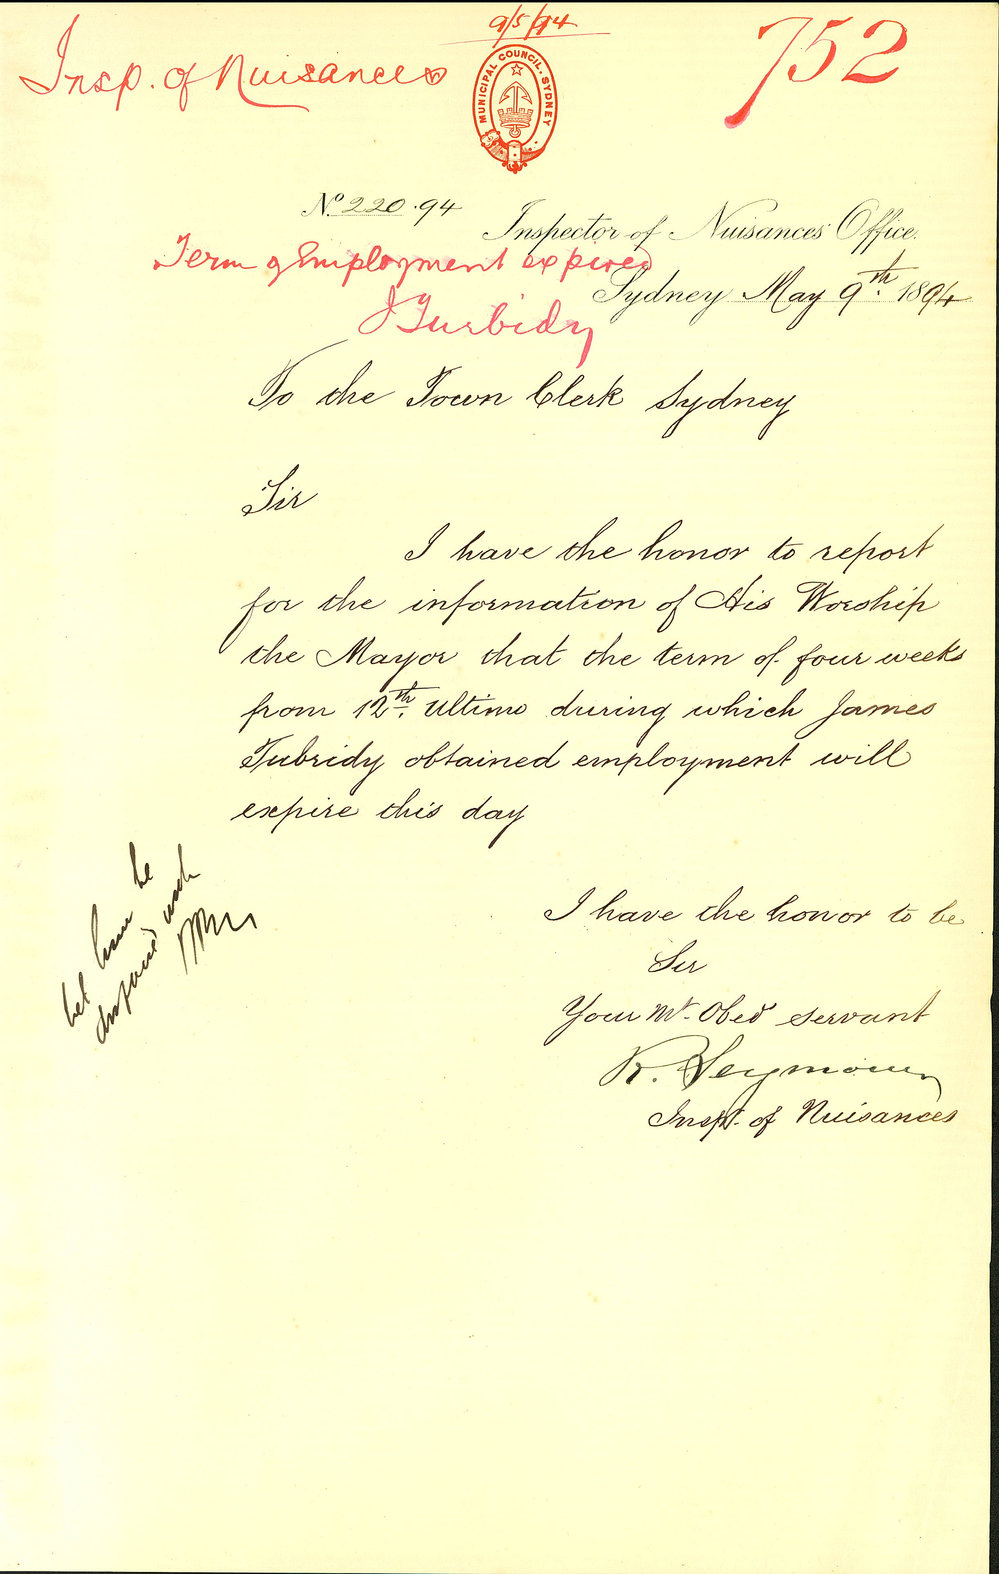 9/5/94
Insp. of Nuisances
752
MUNICIPAL COUNCIL. SYDNEY
No. 220.94
Inspector of Nuisances Office.
Term of Employment expired
Sydney May 9th. 1894
J Turbidy
To the Town Clerk Sydney
Sir
I have the honor to report
for the information of His Worship
the Mayor that the term of four weeks
from 12th. Ultimo during which James
Tubridy obtained employment will
expire this day
Let him be
dispensed with
I have the honor to be
Sir
Your Mt. Obed servant
R. Seymour
Inspt. of Nuisances